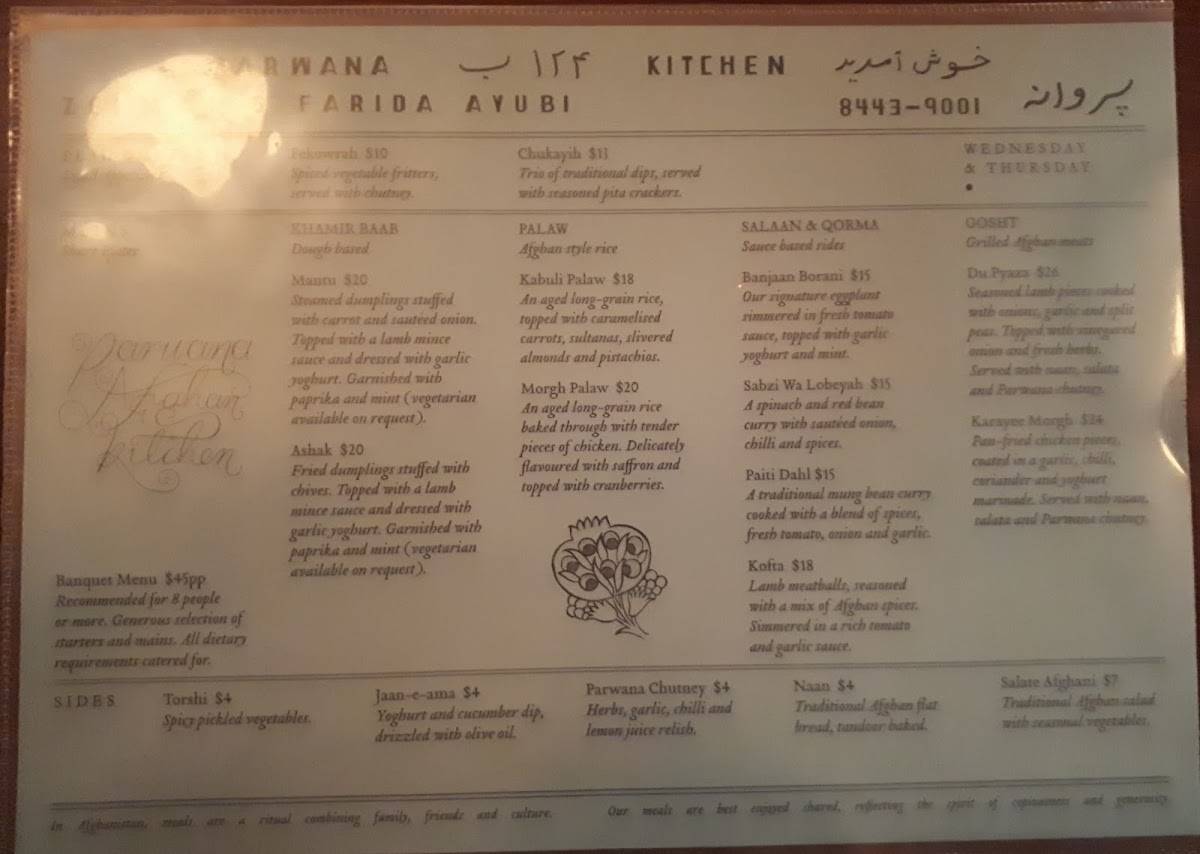 ARWANA ۱۲۴ ب KITCHEN خوش آمدید
FARIDA AYUBI 8443-9001 پروانه
Pekowrah $10
Spiced vegetable fritters,
served with chutney.
Chukayih $13
Trio of traditional dips, served
with seasoned pita crackers.
WEDNESDAY
& THURSDAY
KHAMIR BAAB
Dough based
Mantu $20
Steamed dumplings stuffed
with carrot and sautéed onion.
Topped with a lamb mince
sauce and dressed with garlic
yoghurt. Garnished with
paprika and mint (vegetarian
available on request).
Ashak $20
Fried dumplings stuffed with
chives. Topped with a lamb
mince sauce and dressed with
garlic yoghurt. Garnished with
paprika and mint (vegetarian
available on request).
PALAW
Afghan style rice
Kabuli Palaw $18
An aged long-grain rice,
topped with caramelised
carrots, sultanas, slivered
almonds and pistachios.
Morgh Palaw $20
An aged long-grain rice
baked through with tender
pieces of chicken. Delicately
flavoured with saffron and
topped with cranberries.
SALAAN & QORMA
Sauce based sides
Banjaan Borani $15
Our signature eggplant
simmered in fresh tomato
sauce, topped with garlic
yoghurt and mint.
Sabzi Wa Lobeyah $15
A spinach and red bean
curry with sautéed onion,
chilli and spices.
Paiti Dahl $15
A traditional mung bean curry
cooked with a blend of spices,
fresh tomato, onion and garlic.
Kofta $18
Lamb meatballs, seasoned
with a mix of Afghan spices.
Simmered in a rich tomato
and garlic sauce.
GOSHT
Grilled Afghan meats
Du Pyaza $26
Seasoned lamb pieces cooked
with onions, garlic and split
peas. Topped with vinegared
onion and fresh herbs.
Served with naan, salata
and Parwana chutney.
Karayee Morgh $24
Pan-fried chicken pieces,
coated in a garlic, chilli,
coriander and yoghurt
marinade. Served with naan,
salata and Parwana chutney.
Parwana
Afghan
kitchen
Banquet Menu $45pp
Recommended for 8 people
or more. Generous selection of
starters and mains. All dietary
requirements catered for.
SIDES
Torshi $4
Spicy pickled vegetables.
Jaan-e-ama $4
Yoghurt and cucumber dip,
drizzled with olive oil.
Parwana Chutney $4
Herbs, garlic, chilli and
lemon juice relish.
Naan $4
Traditional Afghan flat
bread, tandoor baked.
Salate Afghani $7
Traditional Afghan salad
with seasonal vegetables.
In Afghanistan, meals are a ritual combining family, friends and culture. Our meals are best enjoyed shared, reflecting the spirit of copiousness and generosity